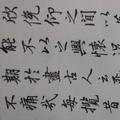 欣俛仰之間以
能不以之興懷況
期於盡古人云
不痛哉每攬昔